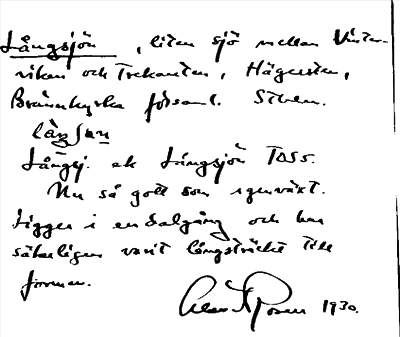 Långsjön, liten sjö mellan Vinter-
viken och Trekanten, Hägersten,
Brännkyrka församl. Sthlm.
Långsj. ek Långsjön TDSS.
Nu så gott som igenväxt.
Ligger i en dalgång och har
säkerligen varit långsträckt till
formen.
1930.